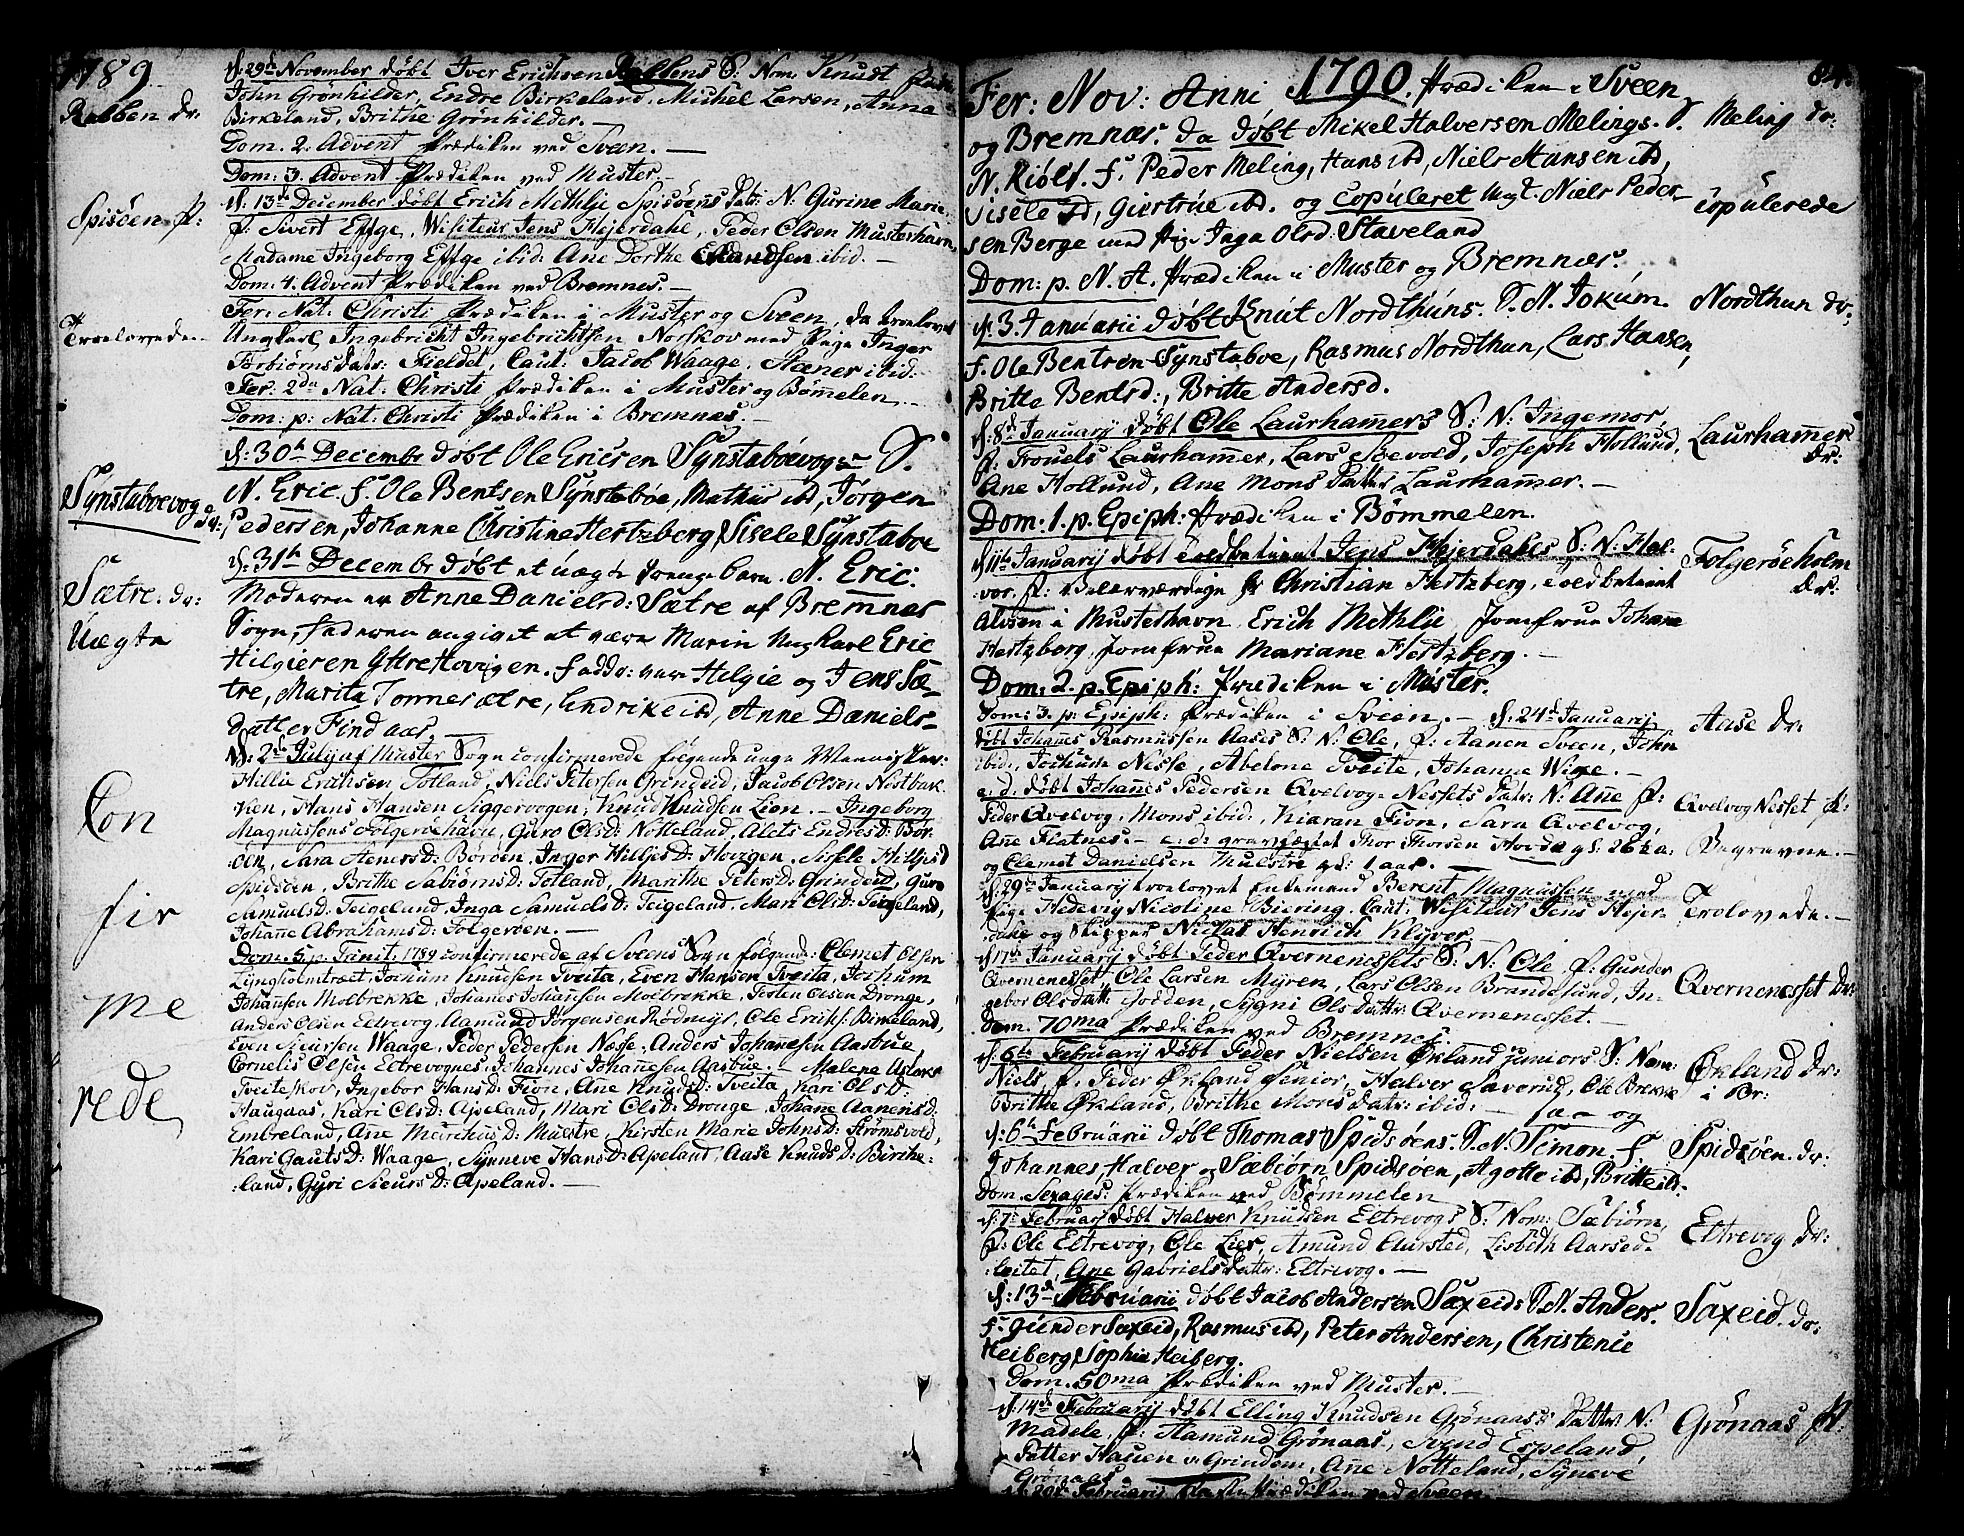 1789
d: 29de November døbt Iver Erichsen Rabbens S: Nom: Knudt
Rabben dr:
John Grønhilder, Endre Birkeland, Michel Larsen, Anna
Birkeland, Brithe Grønhilder. —
Dom. 2. Advent Prædiken ved Sveen. —
Dom: 3. Advent Prædiken ved Muster. —
d. 13de December døbt Erich Methlje Spisøens Datr: N: Gurine Marie,
Spisøen P:
f: Sivert Effge, Wisiteur Jens Hejerdahl, Peder Olsen Musterhavn,
Madame Ingeborg Effge ibid: Ane Dorthe ibid. —
Dom: 4. Advent Prædiken ved Bremnes. —
Fer: Nat: Christi Prædiken i Muster og Sveen, da troelovet
Troelovede.
Ungkarl Ingebricht Ingebrichtsen Norskov med Pige Inger
Torbiørns datr: Fieldet, Caut: Jacob Waage, Stener ibid.
Fer: 2da Nat: Christi Prædiken i Muster og Bømelen. —
Dom: p: Nat: Christi Prædiken i Bremnes. —
d: 30te Decembr døbt Ole Ericsen Synstabøevog S.
N. Eric. f. Ole Bentsen Synstabøe, Mathis ibd, Jørgen
Synstabøevog dr:
Pedersen, Johanne Christine Hertzberg, Sisele Synstaboe
d: 31te Decembr døbt et uægte Drengebarn. N. Eric.
Sætre. dr:
Moderen er Anne Danielsd: Sætre af Bremnes
Uægte
Sogn, faderen angivet at være Marin Ungkarl Eric
Hilgiesen Yttre Hovigen. faddr: vare Helgie og Jens Sæ-
tre, Marita Tonnesætre, Endrike ibd, Anne Daniels-
datter Find aas. —
d: 2de Julij af Muster Sogn confirmerede følgende unge Mennisker:
Hillie Erichsen Totland, Niels Petersen Grindeid, Jacob Olsen Nøstbak-
Con
ken, Hans Hansen Siggervogen, Knud Knudsen Lien. — Ingeborg
Magnussens Folgerøehavn, Guro OlsD: Notteland, Alets EndresD: Bør-
øen, Sara StenersD: Børøen, Inger HilljesD: Hovigen, Sisele HilljesD
Spidsøen, Brithe SabiørnsD: Totland, Marithe PetersD: Grindeid, Guro
fir
SamuelsD: Teigeland, Inga SamuelsD: Teigeland, Mari OlsD: Teigeland,
Johane AbrahamsD: Folgerøen. —
Dom. 5 p. Trinit. 1789 confirmerede af Sveens Sogn følgende: Clemet
Lyngholmtræet, Jochum Knudsen Tveita, Even Hansen Tveita, Jochum
me
Johansen Molbrekke, Johanes Johansen Molbrekke, Torsten Olsen Dronge,
Anders Olsen Eltrevog, Aamund Jørgensen Rødmyr, Ole Eriks: Birkeland,
Even Siursen Waage, Peder Pedersen Næse, Anders Johannesen Aasbue
Cornelis Olsen Eltrevognes, Johannes Johannesen Aasbue. — Malene
rede
Tveiteskov, Ingebor HansD: Fion, Ane KnudsD: Tveita, Kari OlsD:
Haugaas, Kari OlsD: Apeland, Mari OlsD: Dronge, Johane AanensD:
Embreland, Ane MarchusD: Muestre, Kirsten Marie JohnsD: Strømsvold,
Kari GautsD: Waage, Synneve HansD: Apeland, Aase KnudsD: Birke-
:land, Gyri SieursD: Apeland. —
64.
Fer: Nov: Anni 1790. Prædiken i Sveen
og Bremnæs. da døbt Mikel Halversen Melings. S.
Meling dr:
N. Kiøld. f. Peder Meling, Hans ibd, Niels Hansen ibd,
Visele ibd, Giertrue ibd. og copuleret Ungk. Niels Peder-
copulerede
sen Berge med Pige Inga Olsd: Staveland
Dom: p. N. A. Prædiken i Muster og Bremnæs.
d. 3. Januarii døbt Knut Nordthuns. S. N. Jokum.
Nordthun dr:
f. Ole Bentsen Synstaboe, Rasmus Nordthun, Lars Hansen,
Britte Bentsd:, Britte Andersd.
d: 8de Januarij døbt Ole Laurhamers S: N: Ingemor,
Laurhamer dr:
f: Trouels Laurhamer, Lars Soevold, Joseph Hollund,
Ane Hollund, Ane Mons Datter Laurhamer. —
Dom: 1. p. Epiph: Prædiken i Bømmelen.
d 11te Januarij døbt Toldbetient Jens Hejerdahls S: N: Hal-
Folgerøeholm dr:
vor. f: Velærværdige Hr Christian Hertzberg, Toldbetient
Alvsen i Musterhavn, Erich Methlie, Jomfrue Johane
Hertzberg, Jomfrue Mariane Hertzberg. —
Dom: 2. p. Epiph: Prædiken i Muster.
Dom: 3. p: Epiph: Prædiken i Sveen. — d: 24de Januarij
Aase dr:
døbt Johanes Rasmussen Aases S: N: Ole, f: Aanen Sveen, John
ibid:, Jochum Nesse, Abelone Tveite, Johanne Wige. —
e. d: døbt Johanes Pedersen Qvelvog-Nessets Datr: N: Ane f:
Qvelvog Nesset P:
Peder Qvelvog, Mons ibid:, Kiaran Fion, Sara Qvelvog,
Ane Flatnes. — e: d: gravfæstet Thor Thorsen Hovda gl: 26½ a:
Begravne. —
og Clemet Danielsen Muestre gl: 1 aar. —
d: 29de Januarij troelovet Enkemand Berent Magnussen med
Trolovede. —
Pige Hedevig Nicoline Biering. Caut: Wisiteur Jens Hejer-
dahl og Skipper Niclas Henrich Klyver.
d 17de Januarij døbt Peder Qvernenessets S: N: Ole, f: Gunder
Qvernenesset Dr:
Qvernenesset, Ole Larsen Myren, Lars Olsen Brandesund, In-
gebor Olsdattr Jodden, Sygni Olsdattr: Qvernenesset. —
Dom. 70ma Prædiken ved Bremnes.
d: 6te Februarij døbt Peder Nielsen Økland juniors S: Nom:
Økland Dr: i Br:
Niels, f: Peder Økland senior, Halver Savorud, Ole Brekke
Brithe Økland, Brithe Mons datr: ibid: — saa og
d: 6te Februarii døbt Thomas Spidsøens. S. N. Simon. f.
Spidsøen. dr:
Johannes, Halver og Sæbiørn Spidsøen, Agotte ibd, Britte ibd.
Dom. Sexages: Prædiken ved Bømmelen
d: 7de Februarij døbt Halver Knudsen Eltrevogs S: Nom: Sæbiørn,
Eltrevog dr:
f: Ole Eltrevog, Ole Lier, Amund Aarsted, Lisbeth Aarsed.
Ane Gabriels Datr: Eltrevog. —
d: 13de Februarii døbt Jacob Andersen Saxeids S. N. Anders.
Saxeid. dr:
f. Gunder Saxeid, Rasmus ibd, Peter Andersen, Christence
Heiberg, Sophia Heiberg.
Dom. 50ma Prædiken ved Muster. —
d: 14de Februarij døbt Elling Knudsen Grønaas: Dattr: N:
Grønaas P:
Madele, f: Aamund Grønaas, Svend Espeland
Petter Hauen v: Grindem, Ane Notteland, Synevé
Grønaas